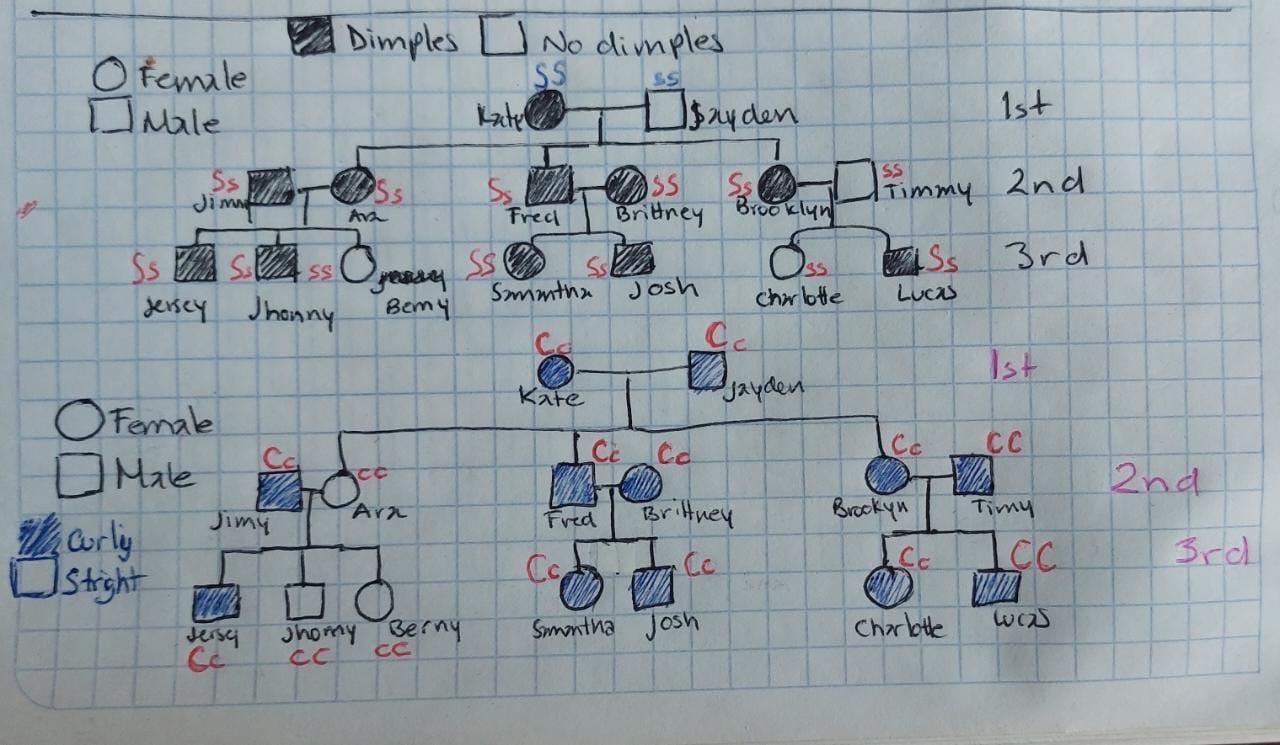 Dimples No dimples
Female
Male
SS ss
Kate Jayden 1st
Ss Ss Ss SS Ss ss
Jimy Ara Fred Brittney Brooklyn Timmy 2nd
Ss Ss ss SS Ss ss Ss 3rd
Jersey Jhonny Berny Samantha Josh Charlotte Lucas
Cc Cc
Kate Jayden 1st
Female
Male
Cc cc Cc Cc Cc CC
Jimy Ara Fred Brittney Brookyn Timy 2nd
Curly
Stright
Cc Cc Cc CC 3rd
Jersey Jhonny Berny Samantha Josh Charlotte Lucas
Cc cc cc